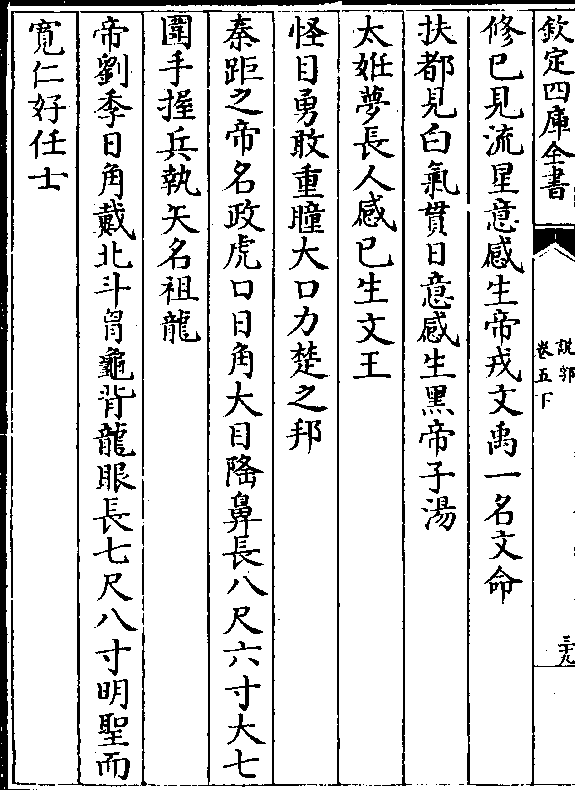 欽定四庫全書
說郛
卷五下
三十九
修巳見流星意感生帝戎文禹一名文命
扶都見白氣貫日意感生黑帝子湯
太姙夢長人感巳生文王
怪目勇敢重瞳大口力楚之邦
秦距之帝名政虎口日角大目隆鼻長八尺六寸大七
圍手握兵執矢名祖龍
帝劉季日角戴北斗胷龜背龍眼長七尺八寸明聖而
寛仁好任士